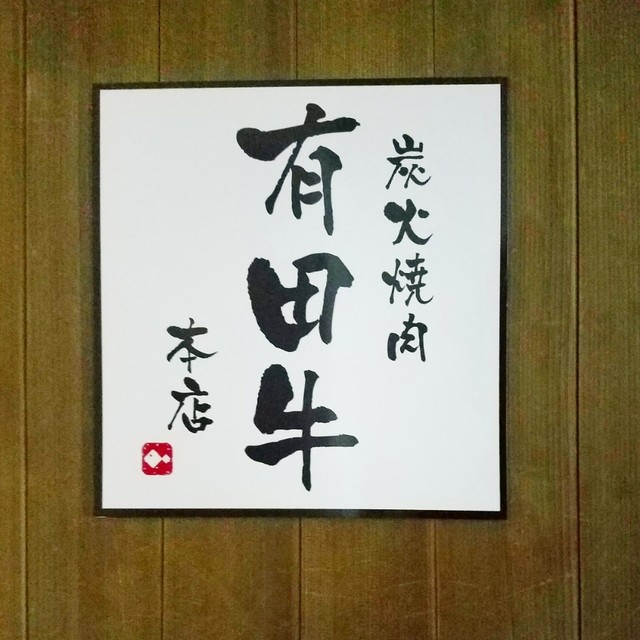 炭火焼肉
有田牛
本店